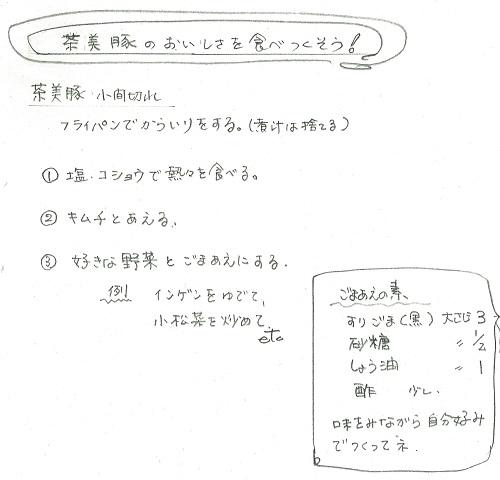 茶美豚のおいしさを食べつくそう!
茶美豚 小間切れ
フライパンでからいりをする。(煮汁は捨てる)
① 塩・コショウで熱々を食べる。
② キムチとあえる。
③ 好きな野菜とごまあえにする。
例 インゲンをゆでて、
小松菜を炒めて、
etc
ごまあえの素、
すりごま(黒) 大さじ3
砂糖 〃 1/2
しょう油 〃 1
酢 少し、
味をみながら自分好み
でつくってネ.